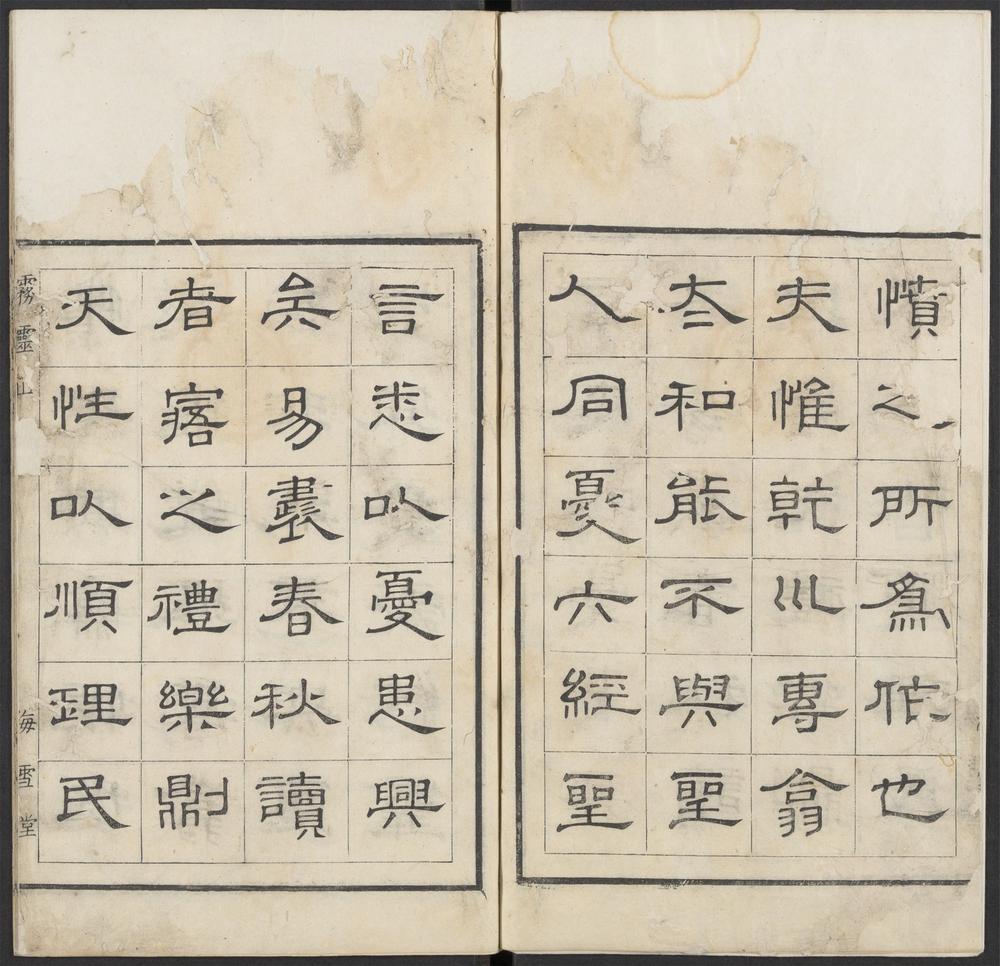 憤之所爲作也
夫惟乾巛專翕
太和能不與聖
人同憂六經聖
言悉以憂患興
矣易畫春秋讀
者寤之禮樂則
天性以順理民
霧靈山
海雪堂